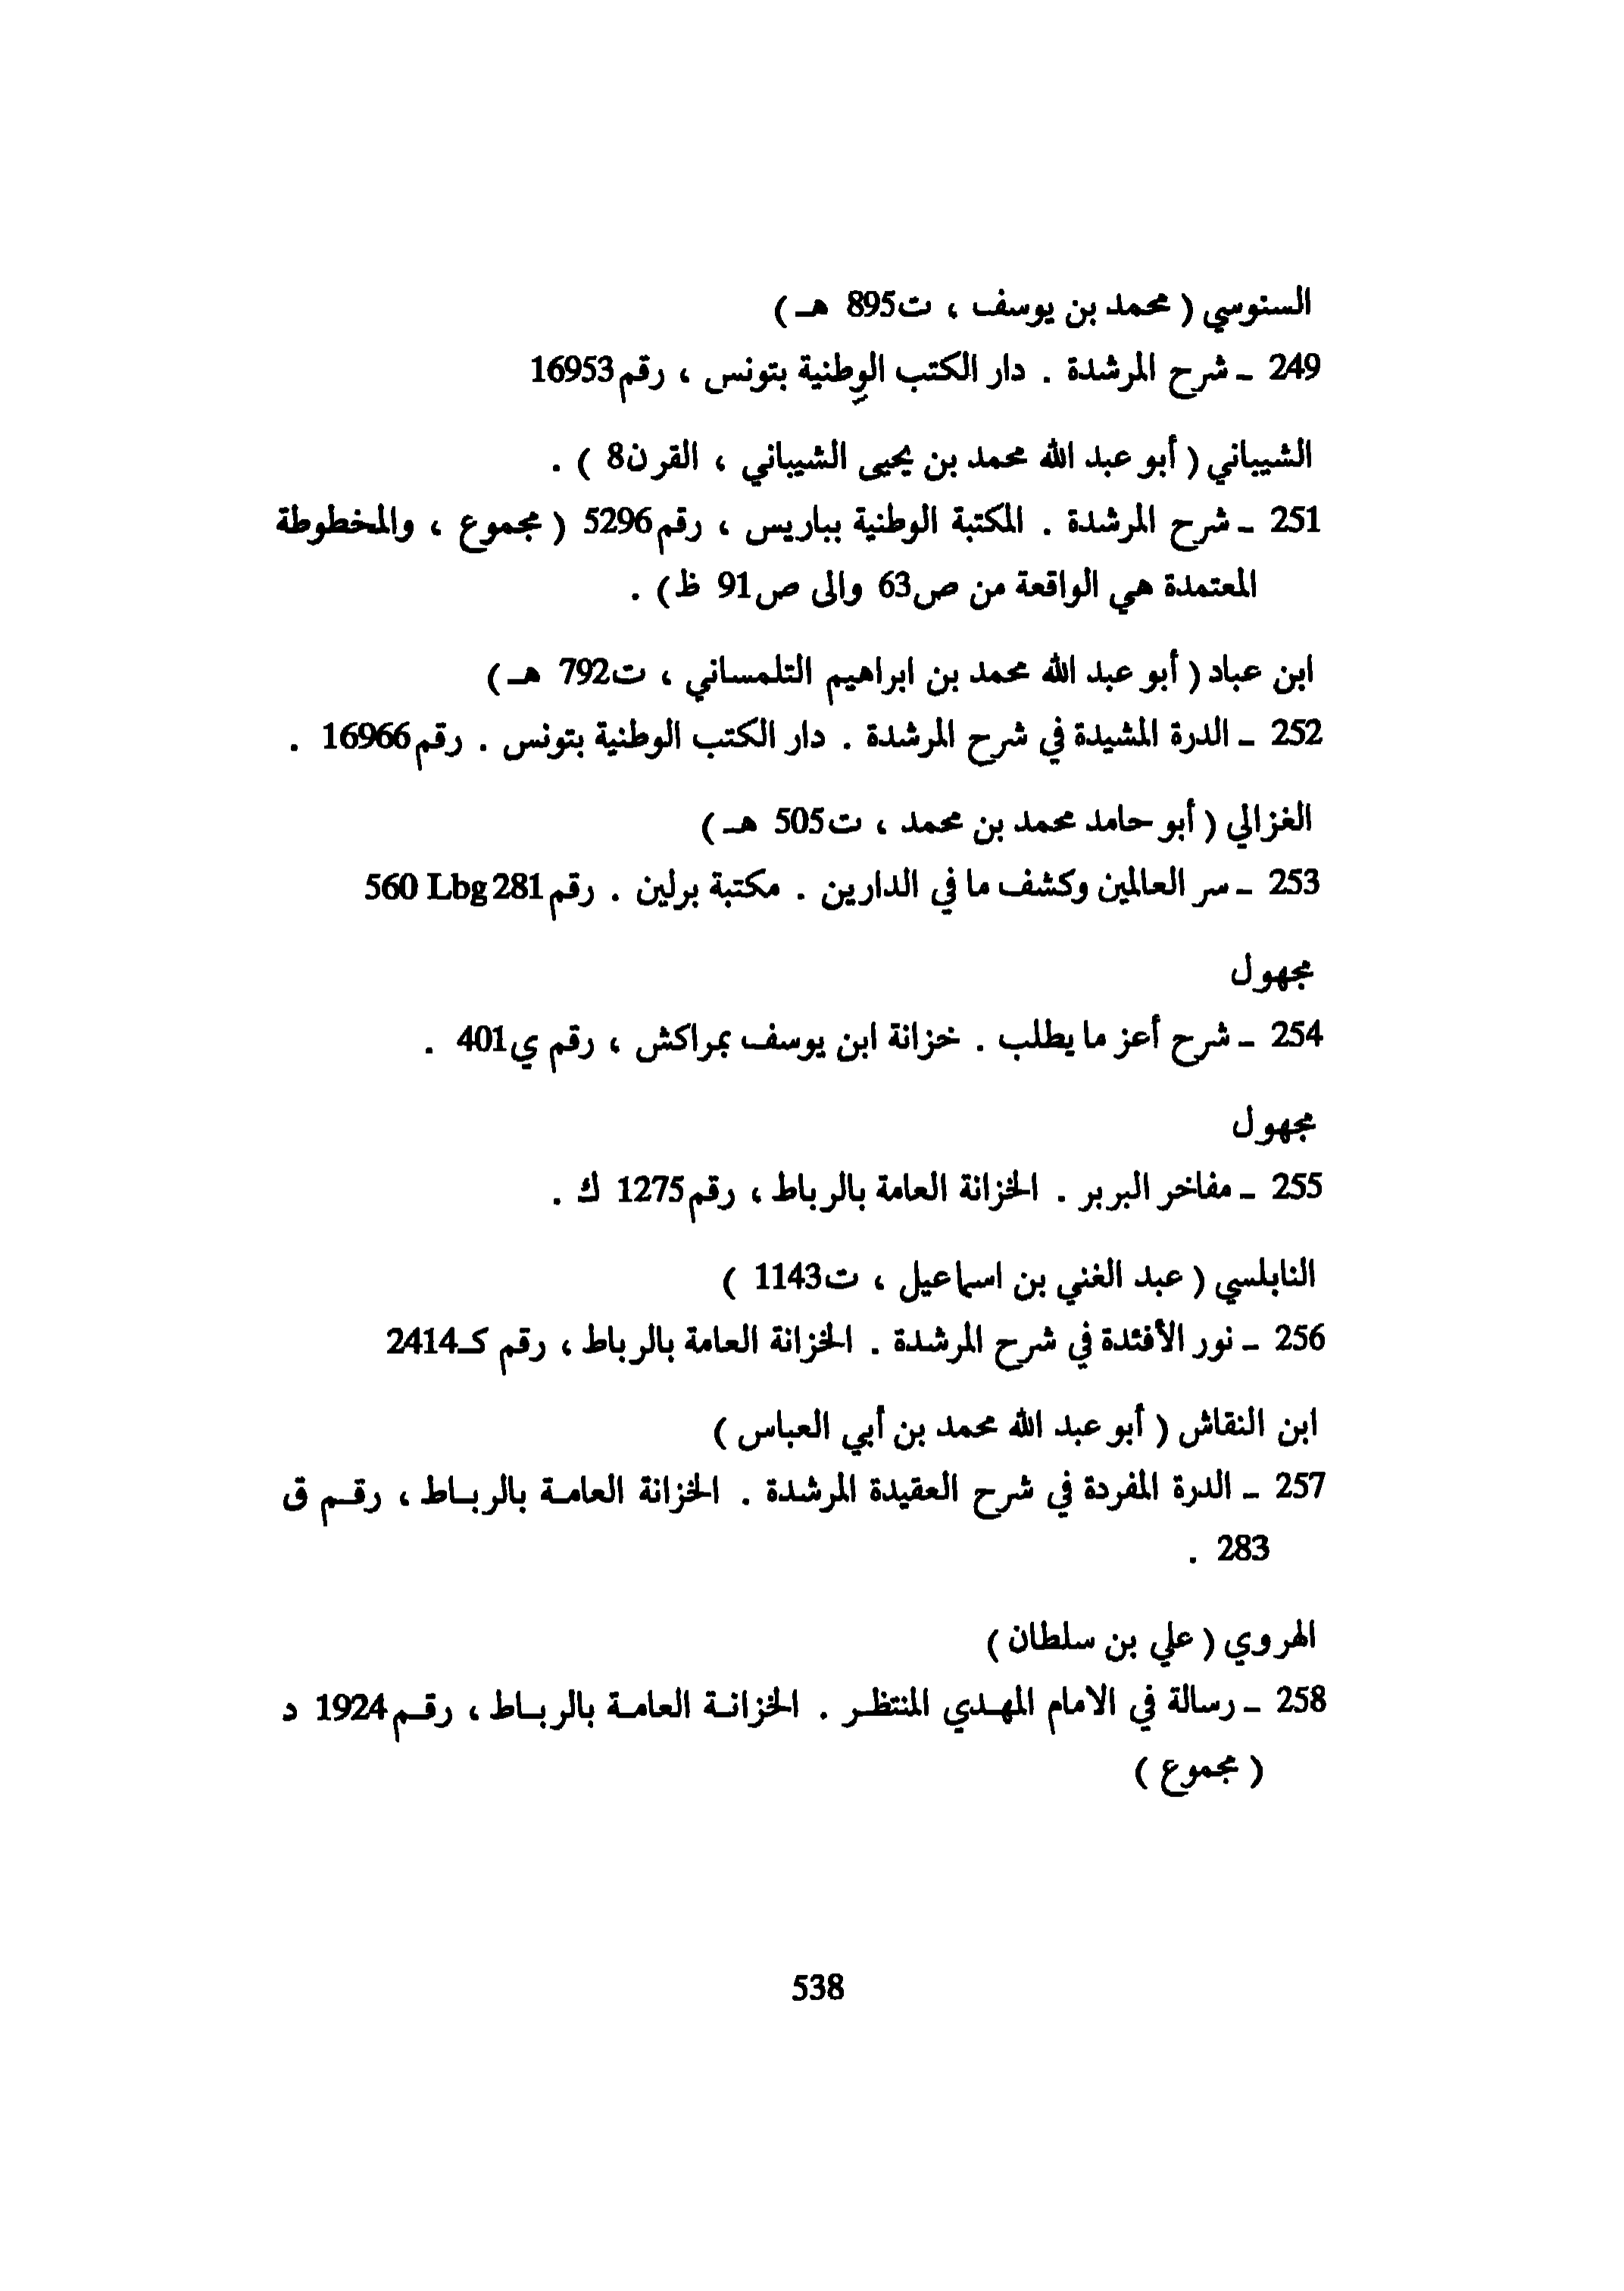 السنوسي ( محمد بن يوسف ، ت895 هـ )
249 ـ شرح المرشدة . دار الكتب الوطنية بتونس ، رقم16953
الشيباني ( أبو عبد الله محمد بن يحيى الشيباني ، القرن8 ) .
251 ـ شرح المرشدة . المكتبة الوطنية بباريس ، رقم5296 ( مجموع ، والمخطوطة
المعتمدة هي الواقعة من ص63 والى ص91 ظ ) .
ابن عباد ( أبو عبد الله محمد بن ابراهيم التلمساني ، ت792 هـ )
252 ـ الدرة المشيدة في شرح المرشدة . دار الكتب الوطنية بتونس . رقم16966 .
الغزالي ( أبو حامد محمد بن محمد ، ت505 هـ )
253 ـ سر العالمين وكشف ما في الدارين . مكتبة برلين . رقم560 Lbg 281
مجهول
254 ـ شرح أعز ما يطلب . خزانة ابن يوسف بمراكش ، رقم ي401 .
مجهول
255 ـ مفاخر البربر . الخزانة العامة بالرباط ، رقم1275 ك .
النابلسي ( عبد الغني بن اسماعيل ، ت1143 )
256 ـ نور الأفئدة في شرح المرشدة . الخزانة العامة بالرباط ، رقم كـ2414
ابن النقاش ( أبو عبد الله محمد بن أبي العباس )
257 ـ الدرة المفردة في شرح العقيدة المرشدة . الخزانة العامة بالرباط ، رقم ق
283 .
الهروي ( علي بن سلطان )
258 ـ رسالة في الامام المهدي المنتظر . الخزانة العامة بالرباط ، رقم1924 د
( مجموع )
538